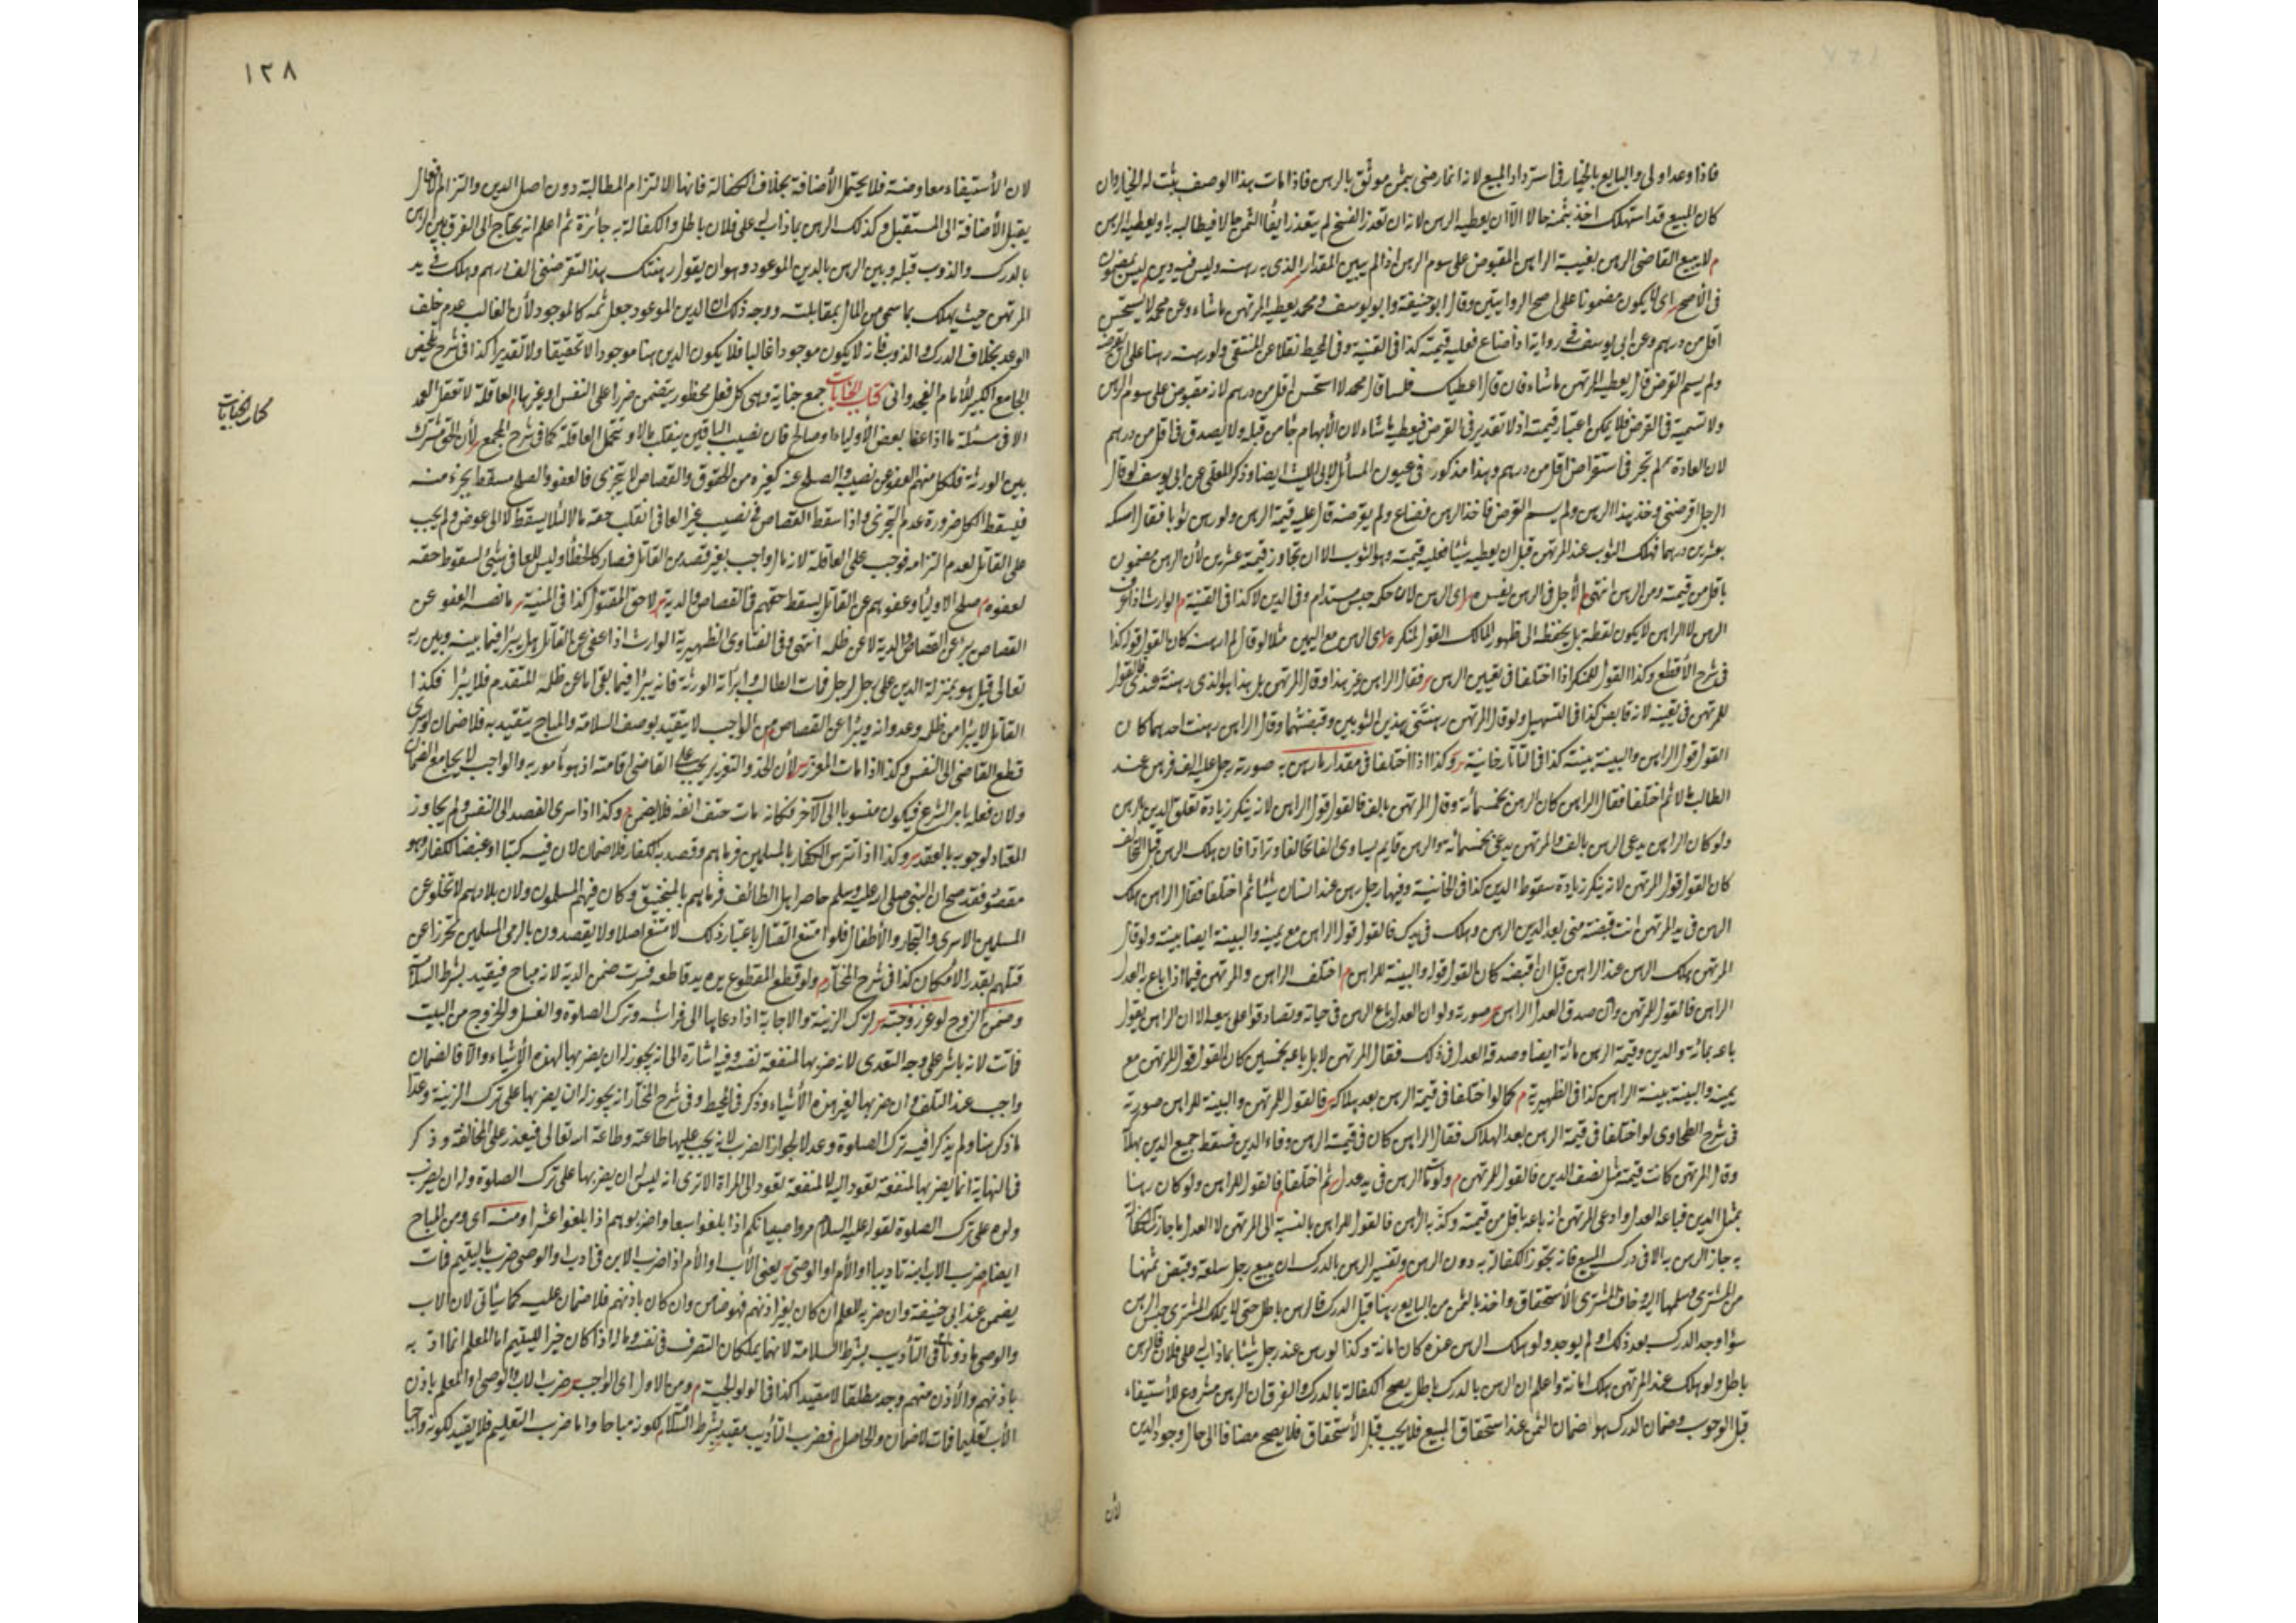 فاذا وعد اولى والبايع بالخيار فى استرداد المبيع لانه انما رضى بثمن موثق بالرهن فاذا مات بهذا الوصف يثبت له الخيار وان
كان المبيع قد استهلك اخذ بثمنه حالا الا ان يعطيه الرهن لانه ان تعذر الفسخ لم يتعذر ايفاء الثمن حالا فيطالب به او يعطيه الرهن
م لا يبيع القاضى الرهن بغيبة الراهن المقبوض على سوم الرهن اذا لم يبين المقدار الذى به رهنه وليس فيه دين ليس بمضمون
فى الأصح اى لا يكون مضمونا على اصح الروايتين وقال ابو حنيفة وابو يوسف ومحمد يعطيه المرتهن ما شاء وعن محمد لا يستحسن
اقل من درهم وعن ابى يوسف فى رواية اذا ضاع فعليه قيمته كذا فى القنية وفى المحيط نقلا عن المنتقى ولو رهنه رهنا على ان يقرضه
ولم يسم القرض قال يعطيه المرتهن ما شاء فان قال اعطيك فلسا قال محمد لا استحسن اقل من درهم لانه مقبوض على سوم الرهن
ولا تسمية فى القرض فلا يمكن اعتبار قيمته اذ لا تقدير فى القرض فيعطيه ما شاء لان الأبهام جاء من قبله ولا يصدق فى اقل من درهم
لان العادة لم تجر فى استقراض اقل من درهم وهذا مذكور فى عيون المسائل لابى الليث ايضا وذكر المعلى عن ابى يوسف لو قال
الرجل اقرضنى وخذ هذا الرهن ولم يسم القرض فاخذ الرهن فضاع ولم يقرضه قال عليه قيمة الرهن ولو رهن ثوبا فقال امسكه
بعشرين درهما فهلك الثوب عند المرتهن قبل ان يعطيه شيئا فعليه قيمته وهو الثوب الا ان تجاوز قيمته عشرين لأن الرهن مضمون
باقل من قيمته ومن الرهن انتهى م الأجل فى الرهن يفسده اى الرهن لان حكمه حبس مستدام وفى الدين لا كذا فى القنية م الوارث اذا عرف
الرهن لا الراهن لا يكون لقطة بل يحفظه الى ظهور المالك القول لمنكره اى الرهن مع اليمين مثلا لو قال لم ارهنه كان القول قوله كذا
فى شرح الأقطع وكذا القول للمنكر اذا اختلفا فى تعيين الرهن فقال الراهن غير هذا وقال المرتهن بل هذا هو الذى رهنته عندى فالقول
للمرتهن فى تعيينه لانه قابض كذا فى التسهيل ولو قال المرتهن رهنتنى هذين الثوبين وقبضتهما وقال الراهن رهنت احدهما كان
القول قول الراهن والبينة بينته كذا فى التاتارخانية وكذا اذا اختلفا فى مقدار ما رهن به صورته رجل عليه الف فرهن عند
الطالب ثم اختلفا فقال الراهن كان الرهن بخمسمأئة وقال المرتهن بالف فالقول قول الراهن لانه ينكر زيادة تعلق الدين بالرهن
ولو كان الراهن يدعى الرهن بالف والمرتهن يدعى بخمسمائة والرهن قايم يساوى الفا تحالفا وترادا فان هلك الرهن قبل التحالف
كان القول قول المرتهن لانه ينكر زيادة سقوط الدين كذا فى الخانية وفيها رجل رهن عند انسان شيئا ثم اختلفا فقال الراهن هلك
الرهن فى يد المرتهن انت قبضته منى بعد الدين الرهن وهلك فى يدك فالقول قول الراهن مع يمينه والبينة ايضا بينته ولو قال
المرتهن هلك الرهن عند الراهن قبل ان اقبضه كان القول قوله والبينة للراهن م اختلف الراهن والمرتهن فيما اذا باع به العدل
الراهن فالقول للمرتهن وان صدق العدل الراهن صورته ولو ان العدل باع الرهن فى حياته وتصادقوا على بيعه الا ان الراهن يقول
باعه بمائة والدين وقيمة الرهن مائة ايضا وصدقه العدل فى ذلك فقال المرتهن لا بل باعه بخمسين كان القول قول المرتهن مع
يمينه والبينة بينة الراهن كذا فى الظهيرية م كما لو اختلفا فى قيمة الرهن بعد هلاكه فالقول للمرتهن والبينة للراهن صورته
فى شرح الطحاوى لو اختلفا فى قيمة الرهن بعد الهلاك فقال الراهن كان فى قيمة الرهن وفاء الدين فسقط جميع الدين بهلاكه
وقال المرتهن كانت قيمته مثل نصف الدين فالقول للمرتهن م ولو مات الرهن فى يد عدل ثم اختلفا فالقول للراهن ولو كان رهنا
بمثل الدين فباعه العدل وادعى المرتهن انه باعه باقل من قيمته وكذبه الراهن فالقول للراهن بالنسبة الى المرتهن لا العدل ما جاز الكفالة
به جاز الرهن به الا فى درك المبيع فانه تجوز الكفالة به دون الرهن وتفسير الرهن بالدرك ان يبيع رجل سلعة وقبض ثمنها
من المشترى وسلمها اليه وخاف المشترى بالأستحقاق واخذ بالثمن من البايع رهنا قبل الدرك فالرهن باطل حتى لا يملك المشترى حبس الرهن
سواء وجد الدرك بعد ذلك او لم يوجد ولو هلك الرهن عنده كان امانة وكذا لو رهن عند رجل شيئا بما ذاب له على فلان فالرهن
باطل ولو هلك عند المرتهن هلك امانة واعلم ان الرهن بالدرك باطل يصح الكفالة بالدرك والفرق ان الرهن مشروع للأستيفاء
قبل الوجوب وضمان الدرك هو ضمان الثمن عند استحقاق المبيع فلا يجب قبل الأستحقاق فلا يصح مضافا الى حال وجود الدين
لأن
١٢٨
لان الأستيفاء معاوضة فلا يحتمل الأضافة بخلاف الكفالة فانها لالتزام المطالبة دون اصل الدين والتزام الافعال
يقبل الأضافة الى المستقبل وكذلك الرهن بما ذاب له على فلان باطل والكفالة به جائزة ثم اعلم انه يحتاج الى الفرق بين الرهن
بالدرك والذوب قبله وبين الرهن بالدين الموعود وهو ان يقول رهنتك هذا لتقرضنى الف درهم وهلك فى يد
المرتهن حيث يهلك بما سمى من المال بمقابلته ووجه ذلك ان الدين الموعود جعل ثمة كالموجود لأن الغالب عدم خلف
الوعد بخلاف الدرك والذوب فانه لا يكون موجودا غالبا فلا يكون الدين هنا موجودا لا تحقيقا ولا تقديرا كذا فى شرح تلخيص
الجامع الكبير للأمام الفجدوانى كتاب الجنايات جمع جناية وهى كل فعل محظور يتضمن ضررا على النفس او غيرها م العاقلة لا تعقل العمد
كتاب الجنايات
الا فى مسئلة ما اذا عفا بعض الأولياء او صالح فان نصيب الباقين ينقلب مالا وتتحمل العاقلة كما فى شرح المجمع لأن الحق مشترك
بين الورثة فلكل منهم العفو عن نصيبه والصلح عنه كغيره من الحقوق والقصاص لا يتجزى فالعفو والصلح مسقط لجزء منه
فيسقط الكل ضرورة عدم التجزى واذا سقط القصاص فى نصيب غير العافى انقلب حقه مالا لئلا يسقط لا الى عوض ولم يجب
على القاتل لعدم التزامه فوجب على العاقلة لانه مال واجب بغير قصد من القاتل فصار كالخطأ وليس للعافى شئ لسقوط حقه
لعفوه م صلح الاولياء وعفوهم عن القاتل يسقط حقهم فى القصاص والدية لا حق المقتول كذا فى المنية ما نصه العفو عن
القصاص يبرئ عن القصاص والدية لا عن ظلمه انتهى وفى الفتاوى الظهيرية الوارث اذا عفى عن القاتل هل يبرأ فيما بينه وبين ربه
تعالى قيل هو بمنزلة الدين على رجل لرجل فمات الطالب وابرأته الورثة فانه يبرأ فيما بقى اما عن ظلمه المتقدم فلا يبرأ فكذا
القاتل لا يبرأ من ظلمه وعدوانه ويبرأ عن القصاص م من الواجب لا يتقيد بوصف السلامة والمباح يتقيد به فلا ضمان لو سرى
قطع القاضى الى النفس وكذا اذا مات المعزر لأن الحد والتعزير يجب على القاضى اقامته اذ هو مأمور به والواجب لا يجامع الضمان
ولان فعله بامر الشرع فيكون منسوبا الى الآخر فكانه مات حتف انفه فلا يضمن م وكذا اذا سرى الفصد الى النفس ولم يجاوز
المعتاد لوجوبه بالعقد وكذا اذا تترس الكفار بالمسلمين فرماهم وقصد به الكفار فلا ضمان لان فيه كبتا او غيضا للكفار وهو
مقصود فقد صح ان النبى صلى الله عليه وسلم حاصر اهل الطائف فرماهم بالمنجنيق وكان فيهم المسلمون ولان بلادهم لا تخلو عن
المسلمين الاسرى والتجار والأطفال فلو امتنع القتال باعتبار ذلك لامتنع اصلا ولا يقصدون بالرمى المسلمين تحرزا عن
قتلهم بقدر الامكان كذا فى شرح المختار م ولو قطع المقطوع يده يد قاطعه فسرت ضمن الدية لانه مباح فيتقيد بشرط السلامة
وضمن الزوج لو عزر زوجته لترك الزينة والاجابة اذا دعاها الى فراشه وترك الصلوة والغسل والخروج من البيت
فماتت لانه باشر على وجه التعدى لانه ضربها لمنفعة نفسه وفيه اشارة الى انه يجوز له ان يضربها لهذه الأشياء والا فالضمان
واجب عند التلف وان ضربها لغير هذه الأشياء وذكر فى المحيط وفى شرح المختار انه يجوز له ان يضربها على ترك الزينة وعدا
ما ذكر هنا ولم يذكرا فيه ترك الصلوة وعدلا لجواز الضرب لانه يجب عليها طاعته وطاعة الله تعالى فيعذر على المخالفة وذكر
فى النهاية انما يضربها لمنفعة تعود اليه لا لمنفعة تعود الى المراة الا ترى انه ليس له ان يضربها على ترك الصلوة وله ان يضرب
ولده على ترك الصلوة لقوله عليه السلام مروا صبيانكم اذا بلغوا سبعا واضربوهم اذا بلغوا عشرا ومنه اى ومن المباح
ايضا ضرب الاب ابنه تاديبا او الأم او الوصى يعنى الأب او الأم اذا ضرب الابن فى ادب او الوصى ضرب اليتيم فمات
يضمن عند ابى حنيفة وان ضربه المعلم ان كان بغير اذنهم فهو ضامن وان كان باذنهم فلا ضمان عليه كما سياتى لان الاب
والوصى ماذونان فى التأديب بشرط السلامة لانهما يملكان التصرف فى نفسه وماله اذا كان خيرا لليتيم اما المعلم انما ادبه
باذنهم والأذن منهم وجد مطلقا لا مقيدا كذا فى الولوالجية م ومن الاول اى الواجب ضرب الاب والوصى او المعلم باذن
الأب تعليما فمات لا ضمان والحاصل فضرب التأديب مقيد بشرط السلام لكونه مباحا واما ضرب التعليم فلا يقيد لكونه واجبا